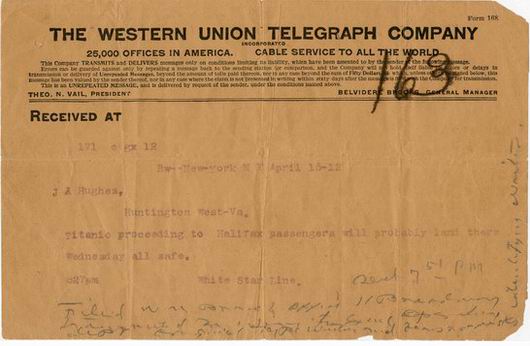 Form 168
THE WESTERN UNION TELEGRAPH COMPANY
INCORPORATED
25,000 OFFICES IN AMERICA. CABLE SERVICE TO ALL THE WORLD
This Company TRANSMITS and DELIVERS messages only on conditions limiting its liability, which have been assented to by the sender of the following message.
Errors can be guarded against only by repeating a message back to the sending station for comparison, and the Company will not hold itself liable for errors or delays in
transmission or delivery of Unrepeated Messages, beyond the amount of tolls paid thereon, nor in any case beyond the sum of Fifty Dollars, at which, unless otherwise stated below, this
message has been valued by the sender thereof, nor in any case where the claim is not presented in writing within sixty days after the message is filed with the Company for transmission.
This is an UNREPEATED MESSAGE, and is delivered by request of the sender, under the conditions named above.
THEO. N. VAIL, PRESIDENT BELVIDERE BROOKS, GENERAL MANAGER
163
RECEIVED AT
171 c gx 12
Bw--New-york N Y April 15-12
J A Hughes,
Huntington West-Va.
Titanic proceeding to Halifax passengers will probably land there
Wednesday all safe.
White Star Line.
Filed N Y Office 11 Broadway